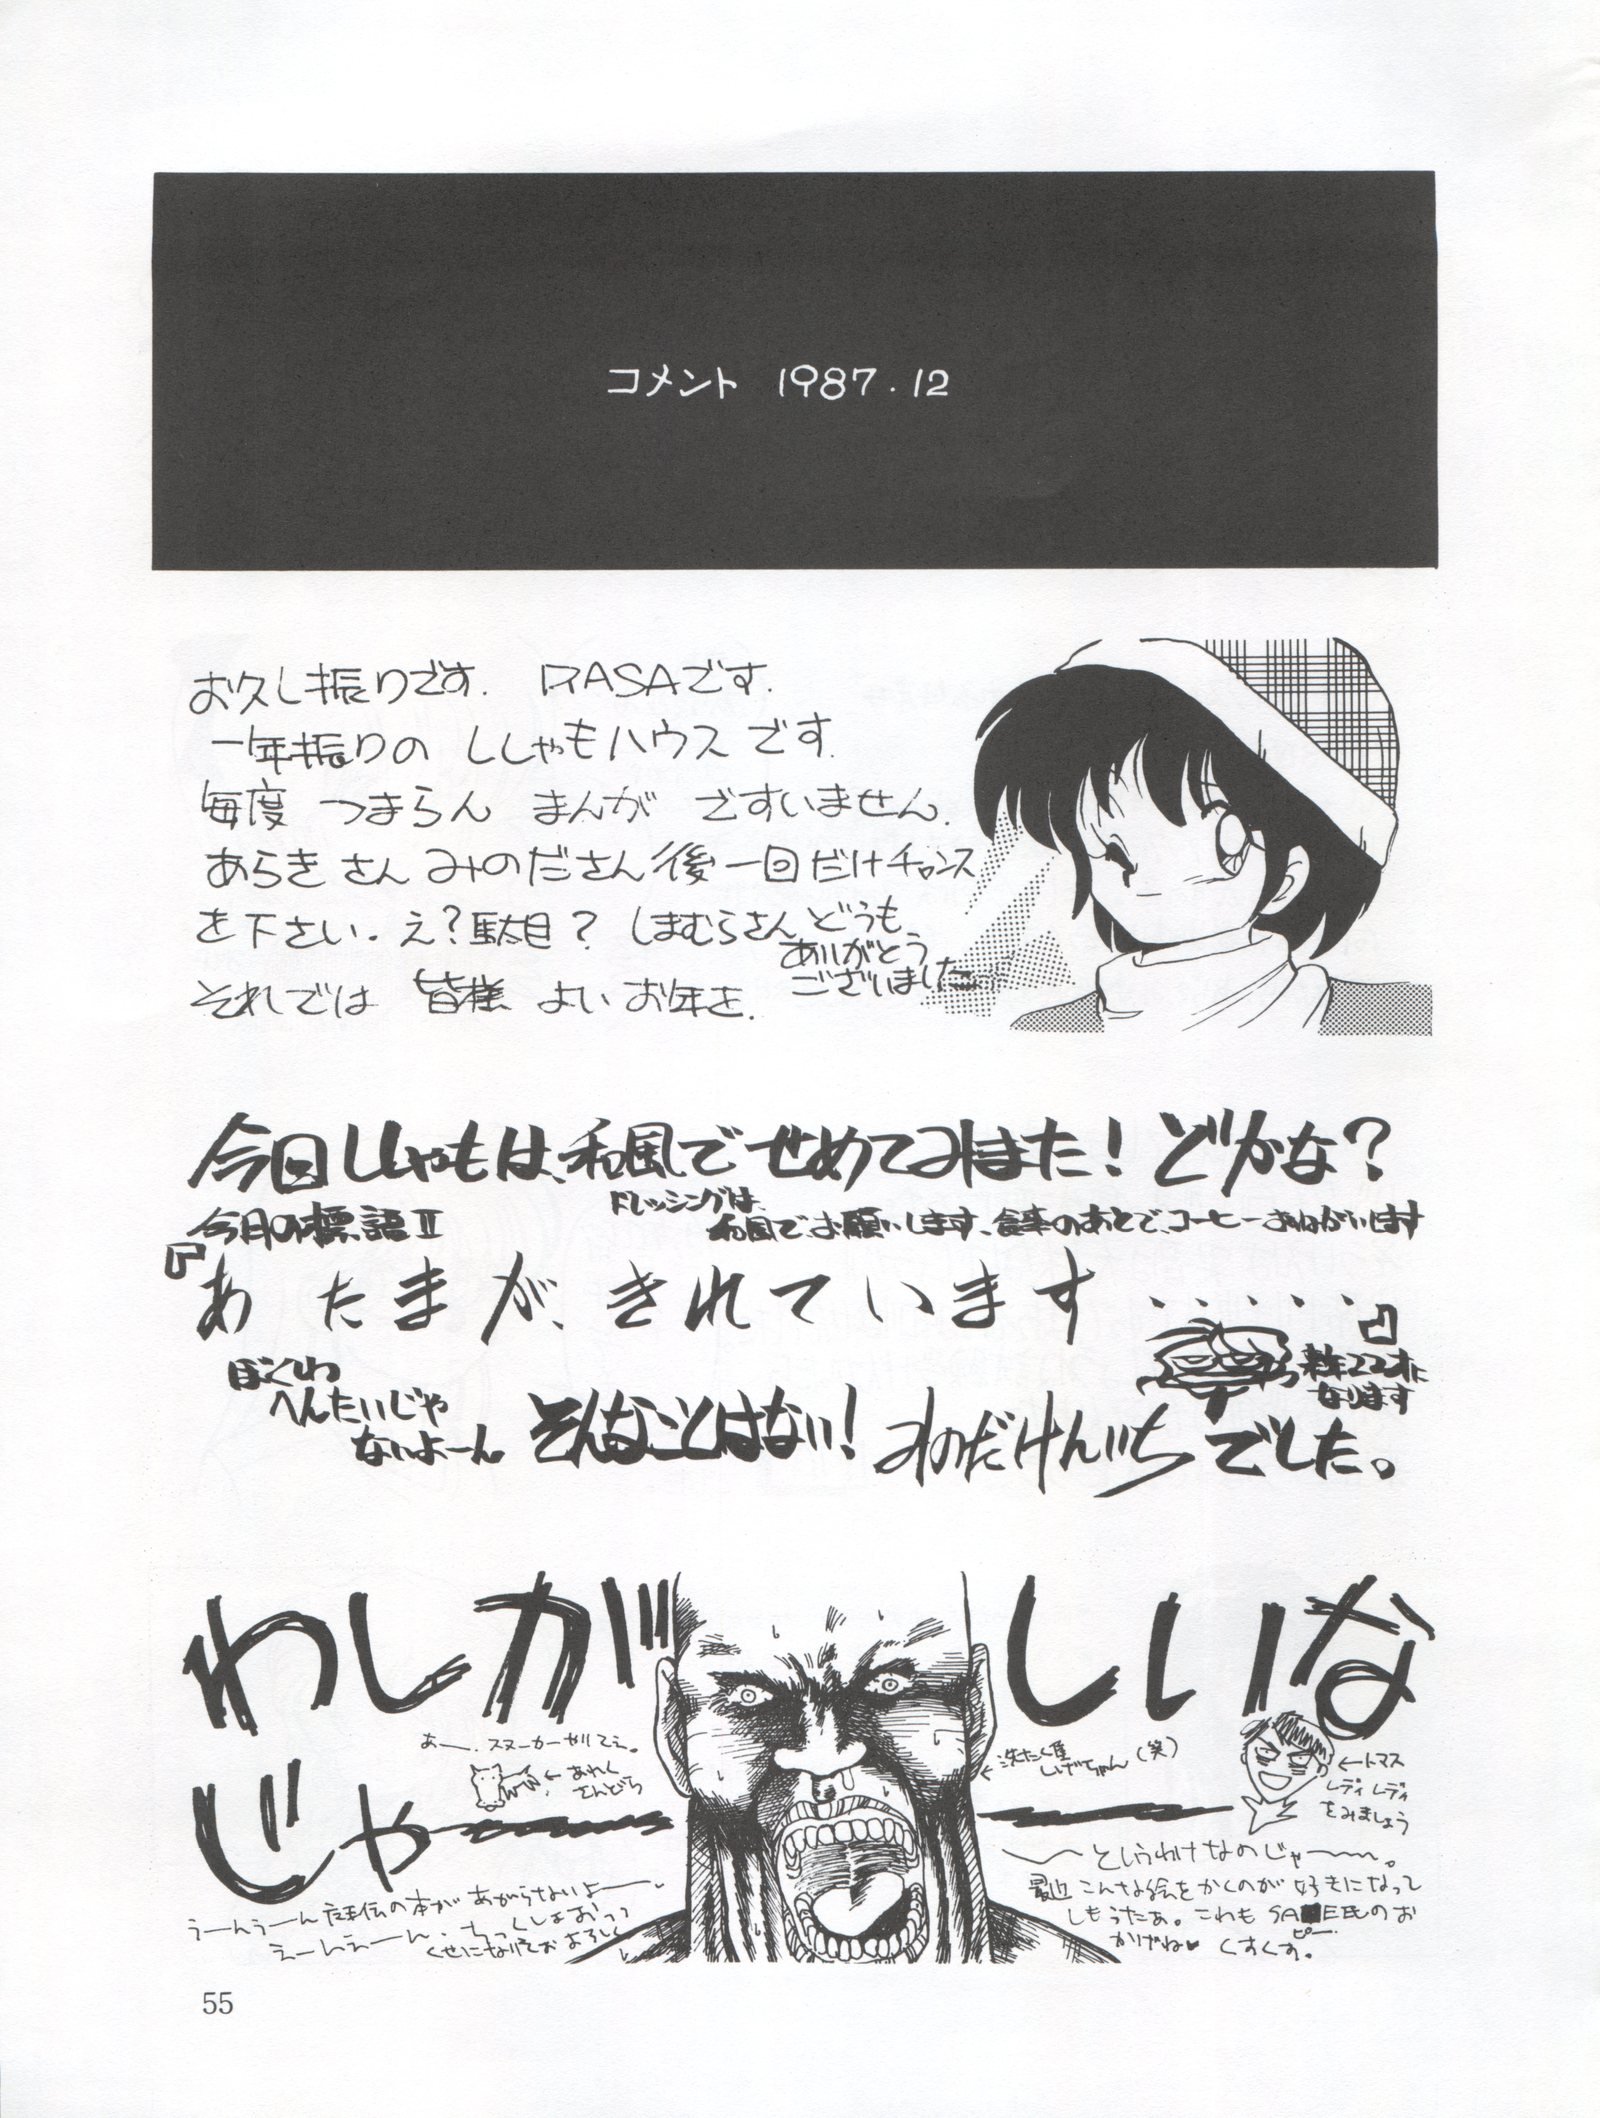 コメント 1987.12
お久し振りです. RASAです.
一年振りの ししゃもハウス です.
毎度 つまらん まんが ですいません.
あらきさん みのださん 後一回だけチャンス
を下さい. え?駄目? しまむらさん どうも
ありがとう
ございました
それでは 皆様 よい お年を.
今回ししゃもは、和風でせめてみました! どぉかな?
今月の標語Ⅱ
ドレッシングは、
和風で、お願いします、食事のあとで、コーヒーおねがいします
『あたまが、きれています・・・・・』
来年22才に
なります
ぼくしわ
へんたいじゃ
ないよーん
そんなことはない! みのだけんいち でした。
わしが しいな
じゃ
あー、スヌーカーやりてえ。
← あれく
さんどら
← 洗たく屋
しげちゃん (笑)
← トマス
レディレディ
をみましょう
〜というわけなのじゃ〜。
最近 こんな絵をかくのが 好きになって
しもうたぁ。これも SA■EE氏のお
ピー
かげね♥ くすくす。
うーんうーん の本が あがらないよー
えーんえーん、ちっくしょおっっ
くせになりそお よろしく
55